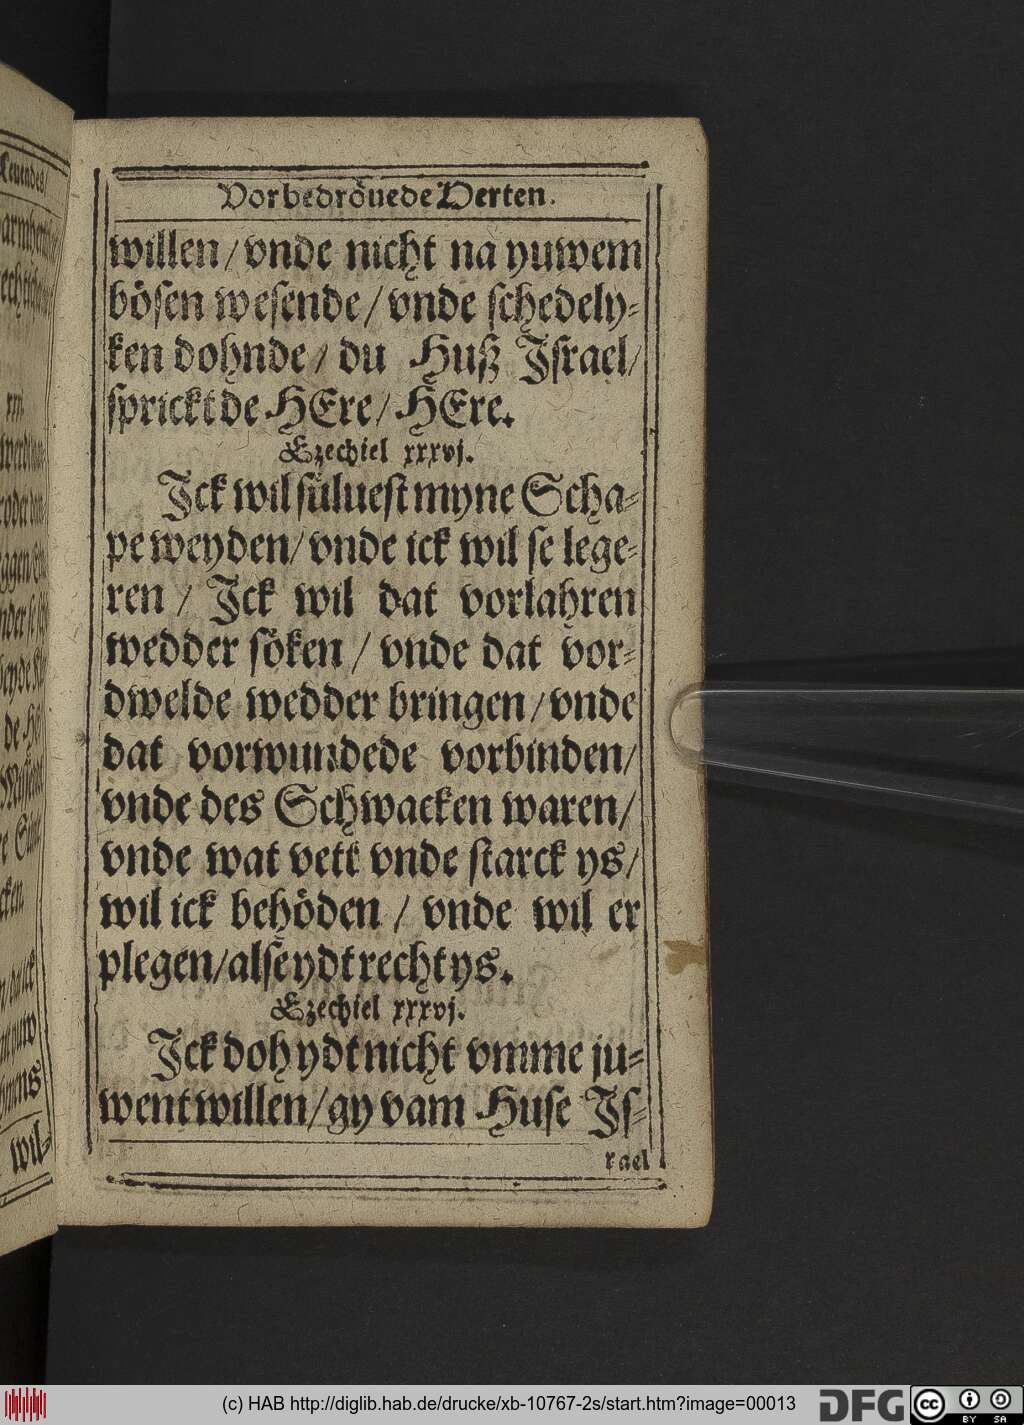 Vorbedröuede Herten.
willen / vnde nicht na yuwem
bösen wesende / vnde schedely-
ken dohnde / du Huß Israel /
sprickt de HEre / HEre.
Ezechiel xxxvj.
Ick wil süluest myne Scha-
pe weyden / vnde ick wil se lege-
ren / Ick wil dat vorlahren
wedder söken / vnde dat vor-
dwelde wedder bringen / vnde
dat vorwundede vorbinden /
vnde des Schwacken waren /
vnde wat vett vnde starck ys /
wil ick behöden / vnde wil er
plegen / alse ydt recht ys.
Ezechiel xxxvj.
Ick doh ydt nicht vmme ju-
went willen / gy vam Huse Is-
rael
(c) HAB http://diglib.hab.de/drucke/xb-10767-2s/start.htm?image=00013
DFG
cc
BY SA